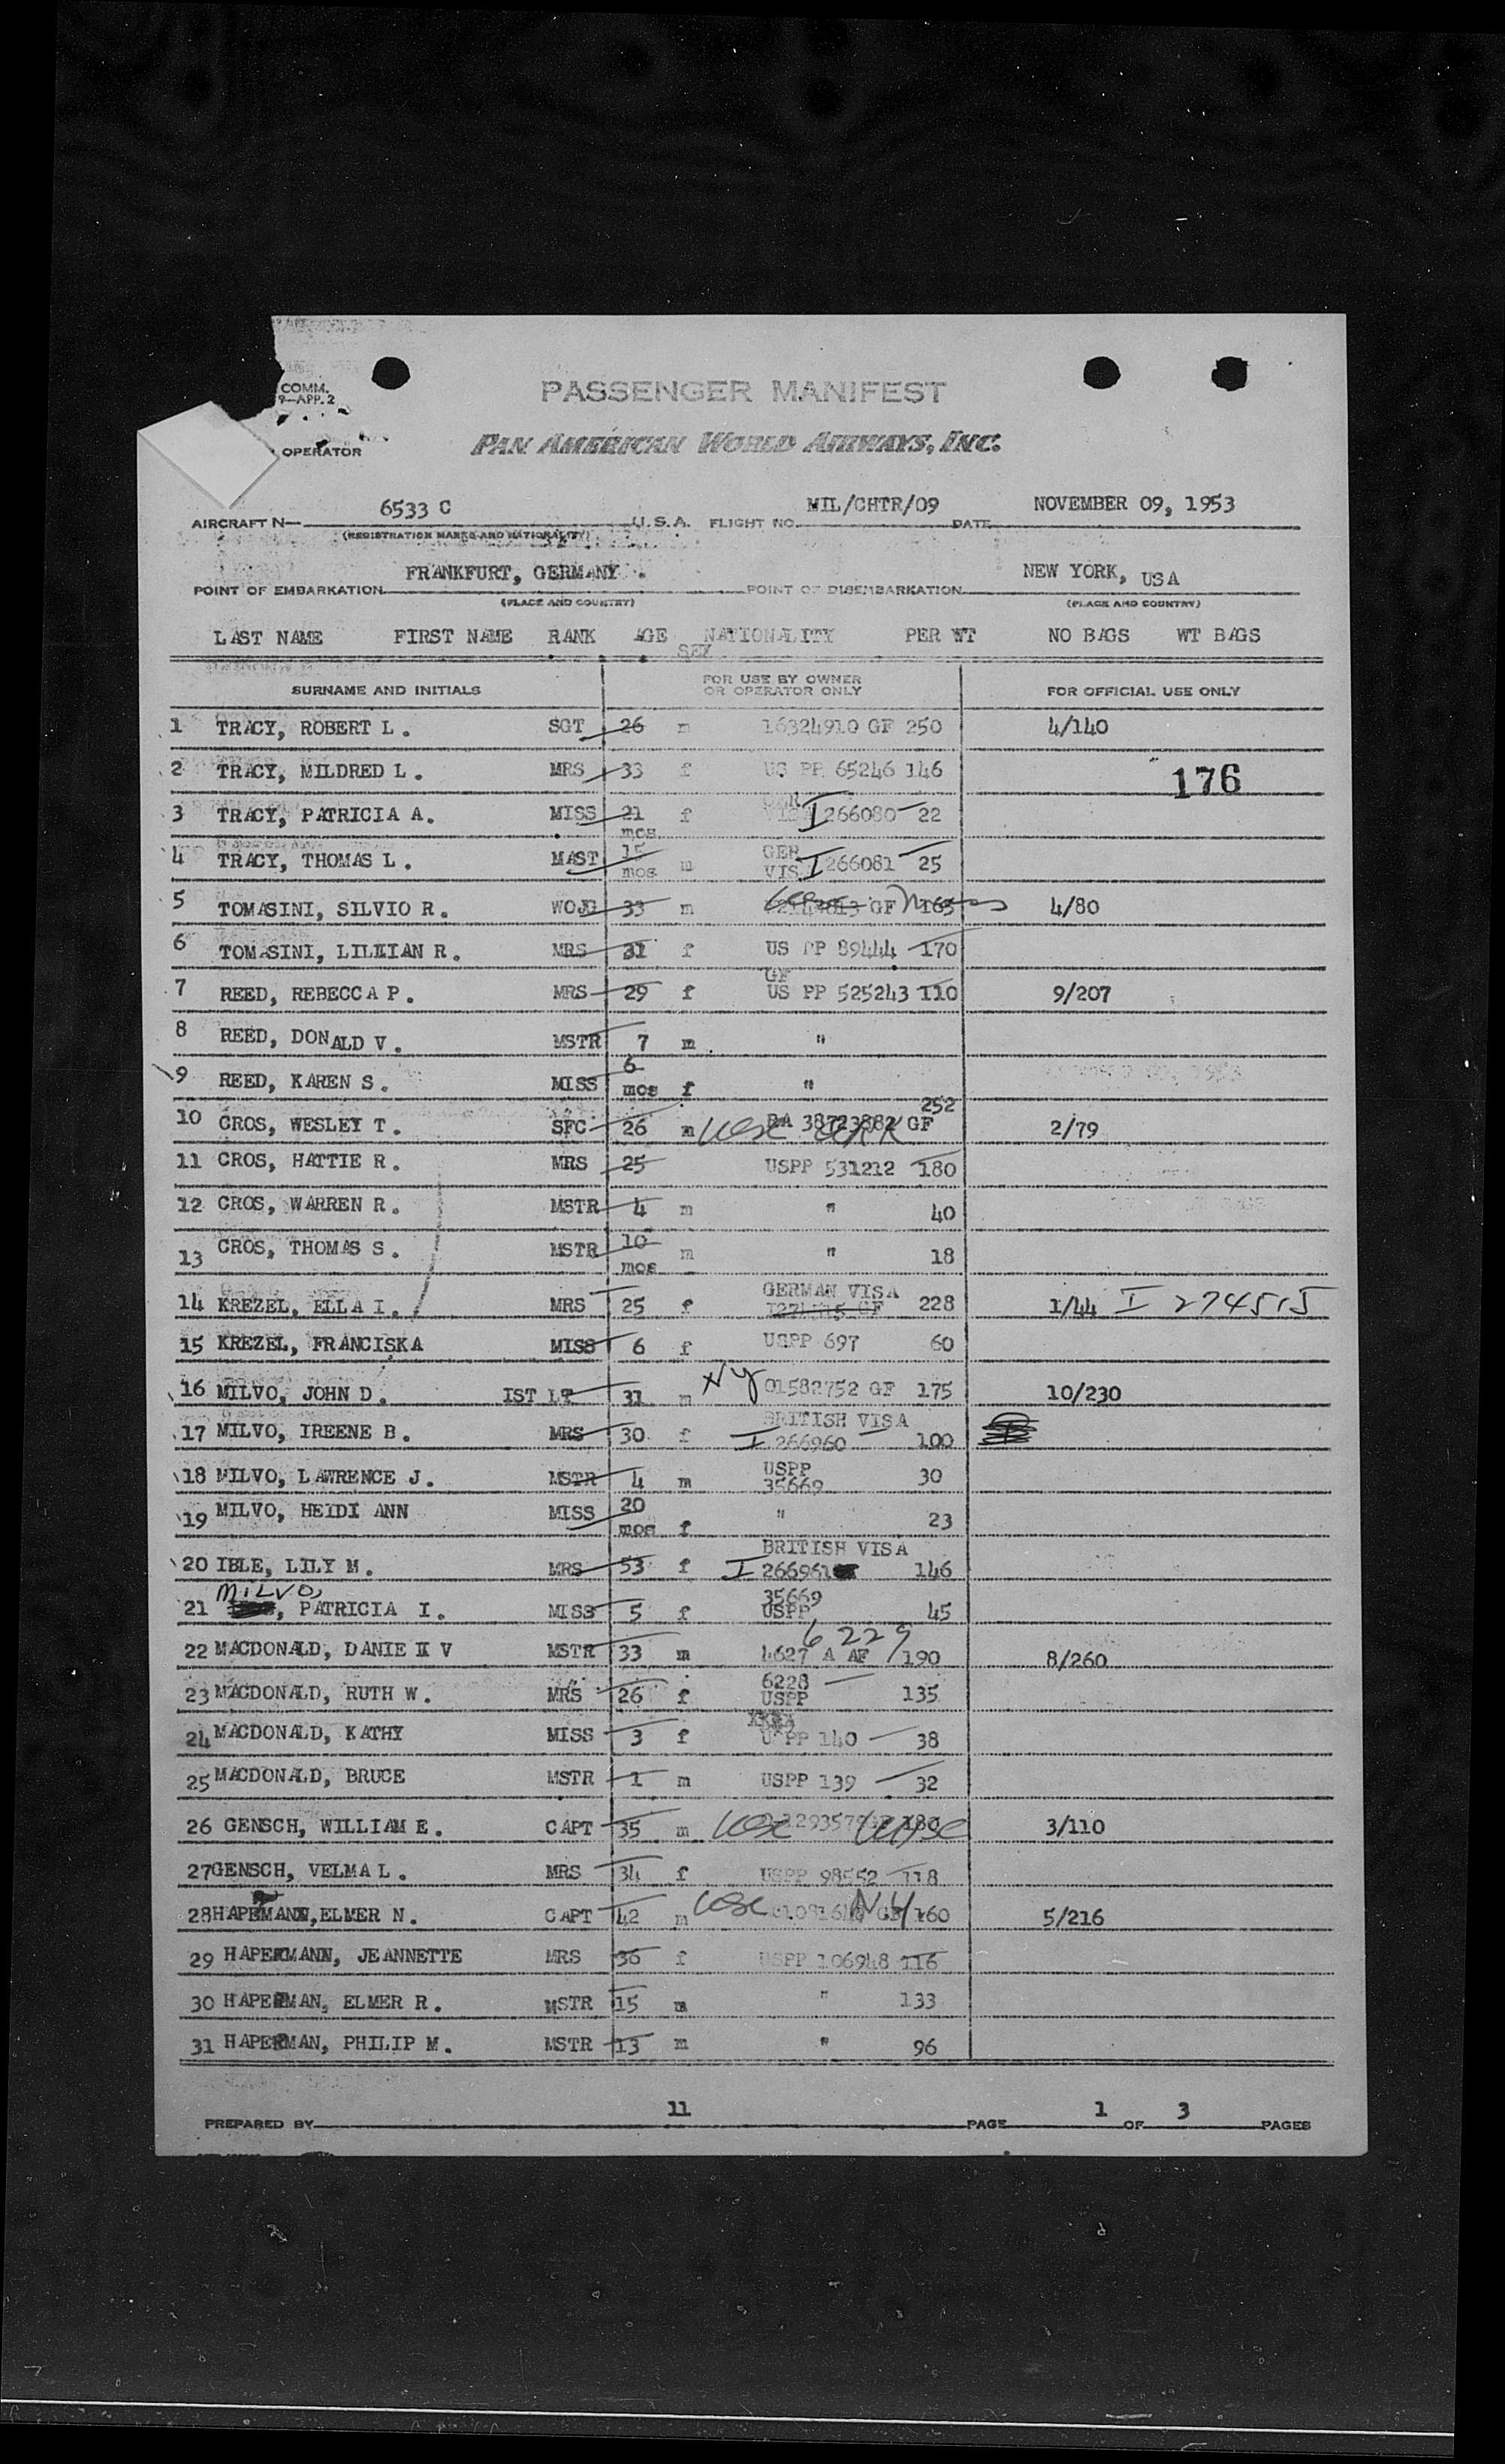 COMM.
9—APP. 2
PASSENGER MANIFEST
OPERATOR
PAN AMERICAN WORLD AIRWAYS, INC.
AIRCRAFT N— 6533 C U.S.A. FLIGHT NO. MIL/CHTR/09 DATE NOVEMBER 09, 1953
(REGISTRATION MARKS AND NATIONALITY)
POINT OF EMBARKATION FRANKFURT, GERMANY . POINT OF DISEMBARKATION NEW YORK, USA
(PLACE AND COUNTRY) (PLACE AND COUNTRY)
LAST NAME FIRST NAME RANK AGE SEX NATIONALITY PER WT NO BAGS WT BAGS
SURNAME AND INITIALS FOR USE BY OWNER OR OPERATOR ONLY FOR OFFICIAL USE ONLY
1 TRACY, ROBERT L. SGT 26 m 16324910 GF 250 4/140
2 TRACY, MILDRED L. MRS 33 f US PP 65246 146 176
3 TRACY, PATRICIA A. MISS 21 mos f VISA I 266080 22
4 TRACY, THOMAS L. MAST 15 mos m GER VIS I 266081 25
5 TOMASINI, SILVIO R. WOJG 33 m GF 165 4/80
6 TOMASINI, LILLIAN R. MRS 31 f US PP 89444 170
7 REED, REBECCA P. MRS 29 f GF US PP 525243 110 9/207
8 REED, DONALD V. MSTR 7 m "
9 REED, KAREN S. MISS 6 mos f "
10 CROS, WESLEY T. SFC 26 m RA 38723882 GF 252 2/79
11 CROS, HATTIE R. MRS 25 USPP 531212 180
12 CROS, WARREN R. MSTR 4 m " 40
13 CROS, THOMAS S. MSTR 10 mos m " 18
14 KREZEL, ELLA I. MRS 25 f GERMAN VISA GF 228 1/44 I 274515
15 KREZEL, FRANCISKA MISS 6 f USPP 697 60
16 MILVO, JOHN D. IST LT 31 m NY 01582752 GF 175 10/230
17 MILVO, IREENE B. MRS 30 f BRITISH VISA I 266960 100
18 MILVO, LAWRENCE J. MSTR 4 m USPP 35669 30
19 MILVO, HEIDI ANN MISS 20 mos f " 23
20 IBLE, LILY M. MRS 53 f BRITISH VISA I 266961 146
21 MILVO, PATRICIA I. MISS 5 f 35669 USPP 45
22 MACDONALD, DANIE V MSTR 33 m 6229 4627 A AF 190 8/260
23 MACDONALD, RUTH W. MRS 26 f 6228 USPP 135
24 MACDONALD, KATHY MISS 3 f USPP 140 38
25 MACDONALD, BRUCE MSTR 1 m USPP 139 32
26 GENSCH, WILLIAM E. CAPT 35 m 180 3/110
27 GENSCH, VELMA L. MRS 34 f USPP 98552 118
28 HAPERMANN, ELMER N. CAPT 42 m NY 160 5/216
29 HAPERMANN, JEANNETTE MRS 36 f USPP 106948 116
30 HAPERMAN, ELMER R. MSTR 15 m " 133
31 HAPERMAN, PHILIP M. MSTR 13 m " 96
PREPARED BY 11 PAGE 1 OF 3 PAGES